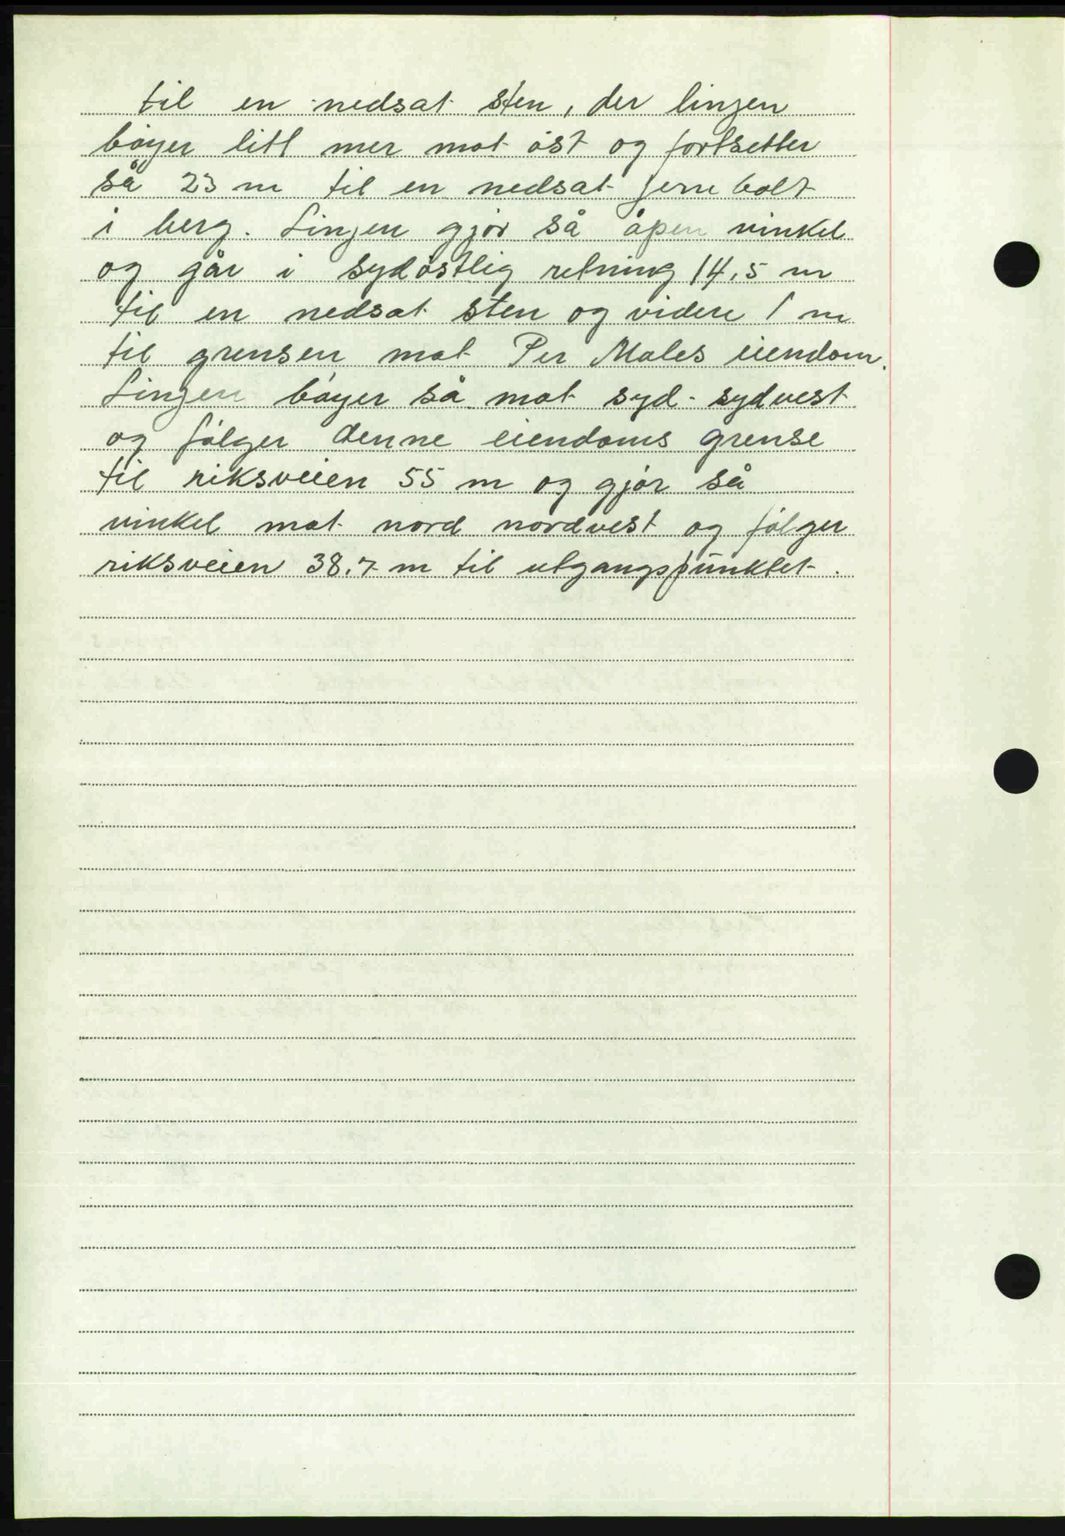 til en nedsat sten, der linjen
bøyer litt mer mot øst og fortsetter
så 23 m til en nedsat jernbolt
i berg. Linjen gjør så åpen vinkel
og går i sydøstlig retning 14,5 m
til en nedsat sten og videre 1 m
til grensen mot Per Moles eiendom.
Linjen bøyer så mot syd-sydvest
og følger denne eiendoms grense
til riksveien 55 m og gjør så
vinkel mot nord nordvest og følger
riksveien 38.7 m til utgangspunktet.